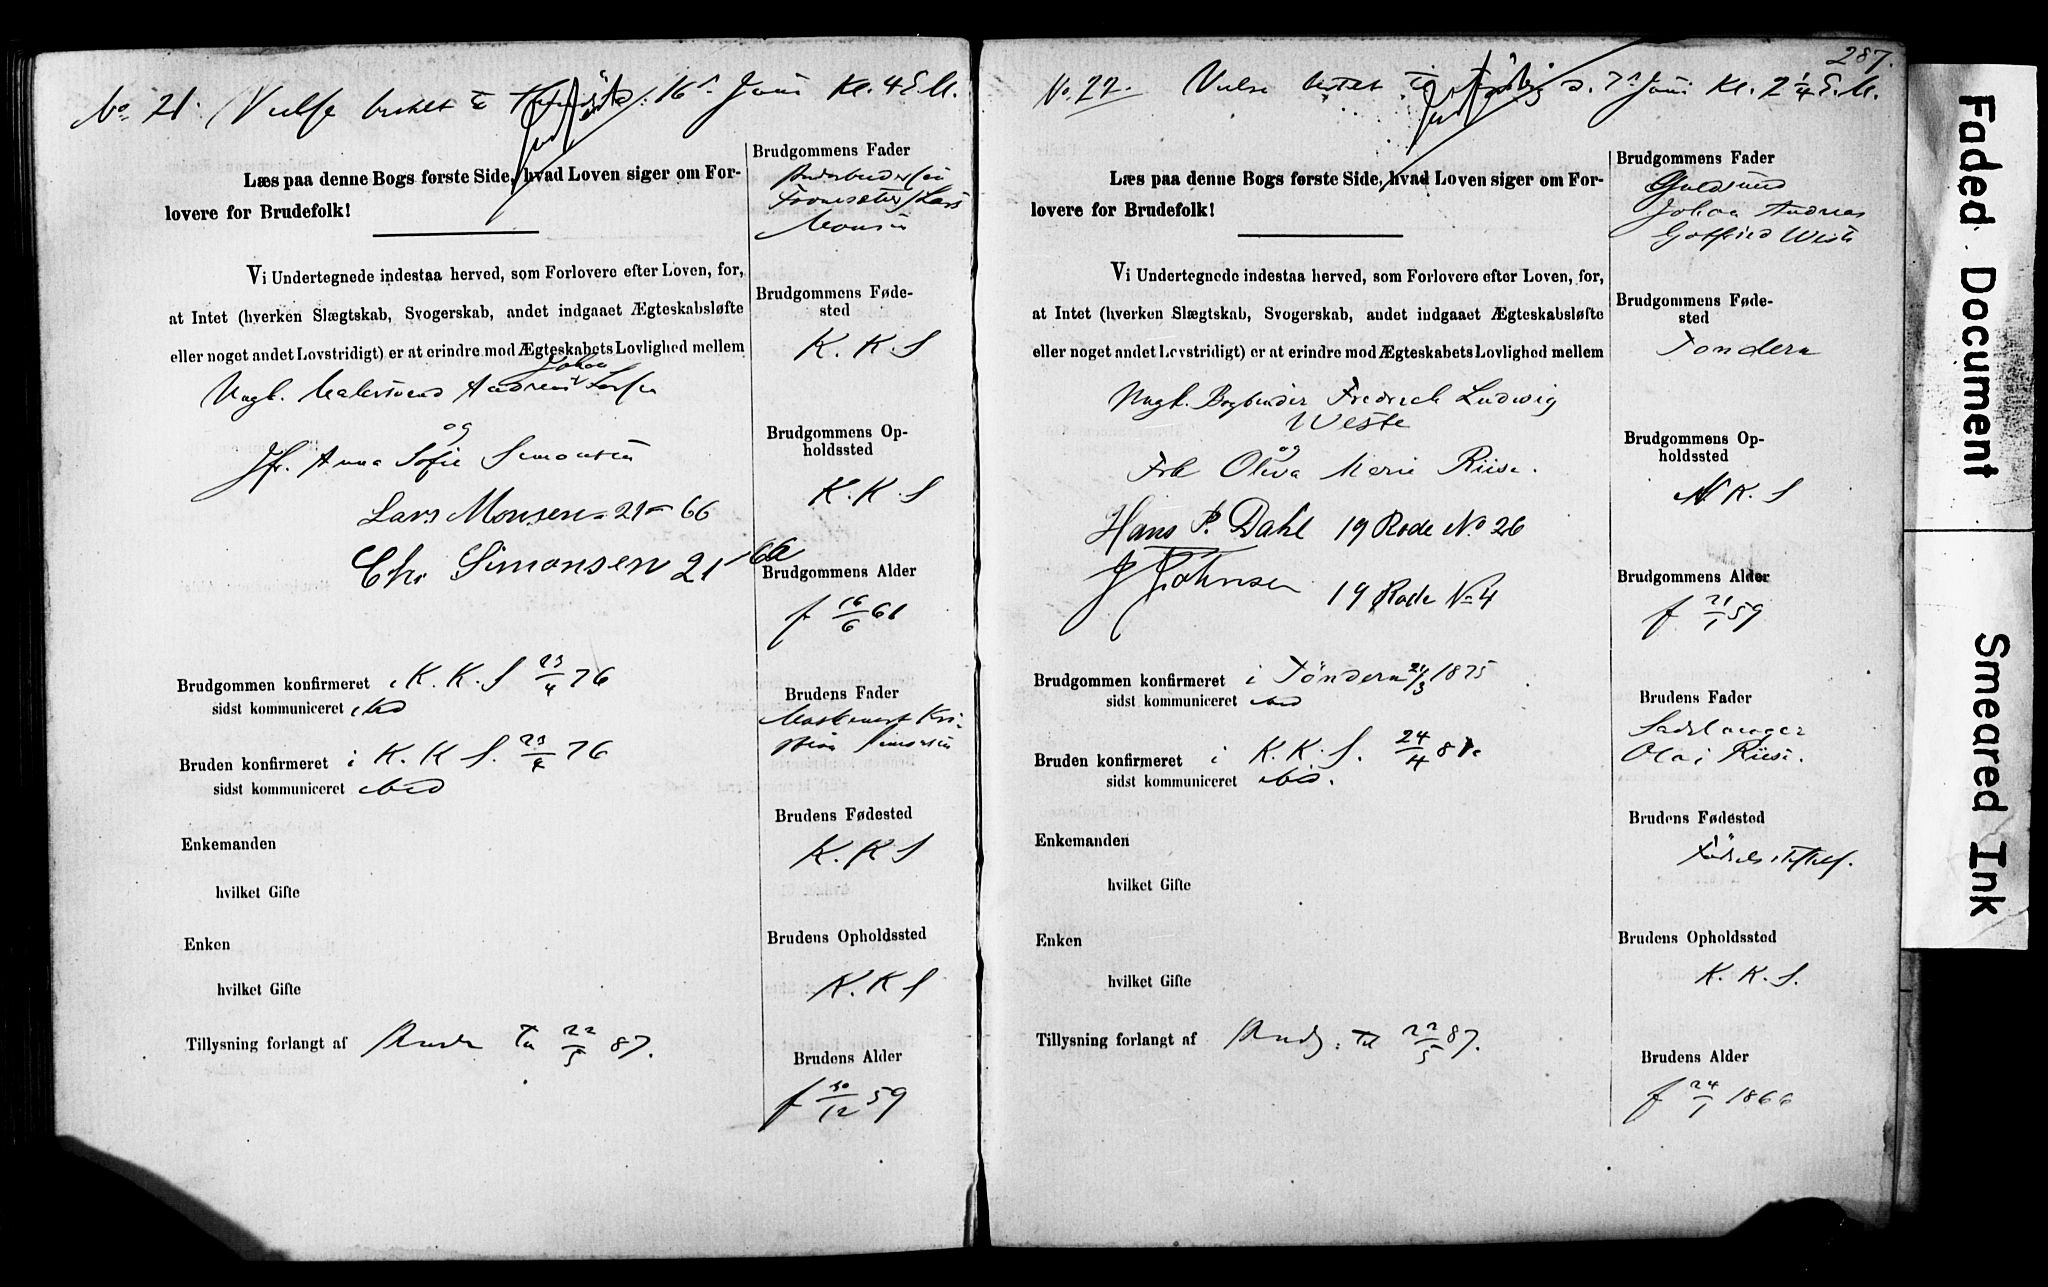 No 21. Vielse bestilt til 16 Juni Kl. 4 E.M.
Læs paa denne Bogs første Side, hvad Loven siger om For-
lovere for Brudefolk!
Vi Undertegnede indestaa herved, som Forlovere efter Loven, for,
at Intet (hverken Slægtskab, Svogerskab, andet indgaaet Ægteskabsløfte
eller noget andet Lovstridigt) er at erindre mod Ægteskabets Lovlighed mellem
Johan
Ungk. Malersvend Andreas
og
Jfr. Anna Sofie Simonsen
Lars Monsen - 21 - 66
Chr. Simonsen 21 - 66
Brudgommen konfirmeret i K. K. S 23/4 76
sidst kommuniceret ibid
Bruden konfirmeret i K. K. S. 23/4 76
sidst kommuniceret ibid
Enkemanden
hvilket Gifte
Enken
hvilket Gifte
Tillysning forlangt af 22/5 87.
Brudgommens Fader
Lars
Monsen
Brudgommens Føde-
sted
K. K. S
Brudgommens Op-
holdssted
K. K. S
Brudgommens Alder
f 16/6 61
Brudens Fader
Kri-
stian Simonsen
Brudens Fødested
K. K. S
Brudens Opholdssted
K. K. S
Brudens Alder
f 30/12 59
287.
No. 22. Vielse bestilt til d. 7 Juni Kl. 2 1/4 E. M.
Læs paa denne Bogs første Side, hvad Loven siger om For-
lovere for Brudefolk!
Vi Undertegnede indestaa herved, som Forlovere efter Loven, for,
at Intet (hverken Slægtskab, Svogerskab, andet indgaaet Ægteskabsløfte
eller noget andet Lovstridigt) er at erindre mod Ægteskabets Lovlighed mellem
Ungk. Bogbinder Fredrich Ludwig
Weste
og
Frk Oliva Marie Riise.
Hans P. Dahl 19 Rode No 26
J Johnsen 19 Rode No 4
Brudgommen konfirmeret i Töndern 21/3 1875
sidst kommuniceret ibid
Bruden konfirmeret i K. K. S. 24/4 81.
sidst kommuniceret ibid.
Enkemanden
hvilket Gifte
Enken
hvilket Gifte
Tillysning forlangt af Brudg. til 22/5 87.
Brudgommens Fader
Guldsmed
Johan Andreas
Gotfried Weste
Brudgommens Føde-
sted
Tondern
Brudgommens Op-
holdssted
N K. S
Brudgommens Alder
f 21/1 59
Brudens Fader
Olai Riise.
Brudens Fødested
Brudens Opholdssted
K. K. S.
Brudens Alder
f 24/1 1866
Faded Document
Smeared Ink